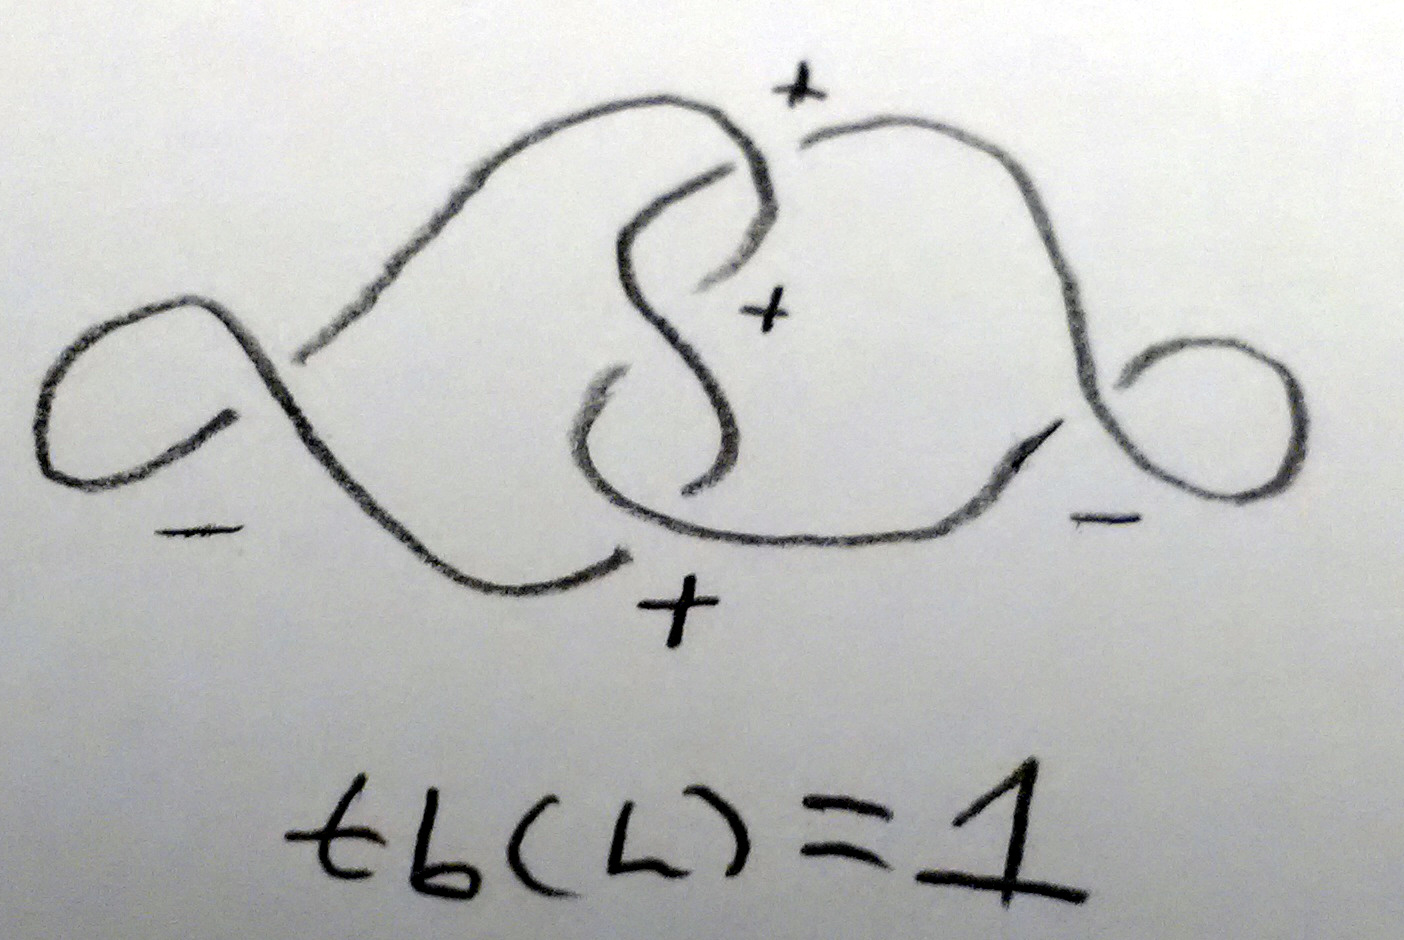 +
+
−
−
+
tb(L)=1